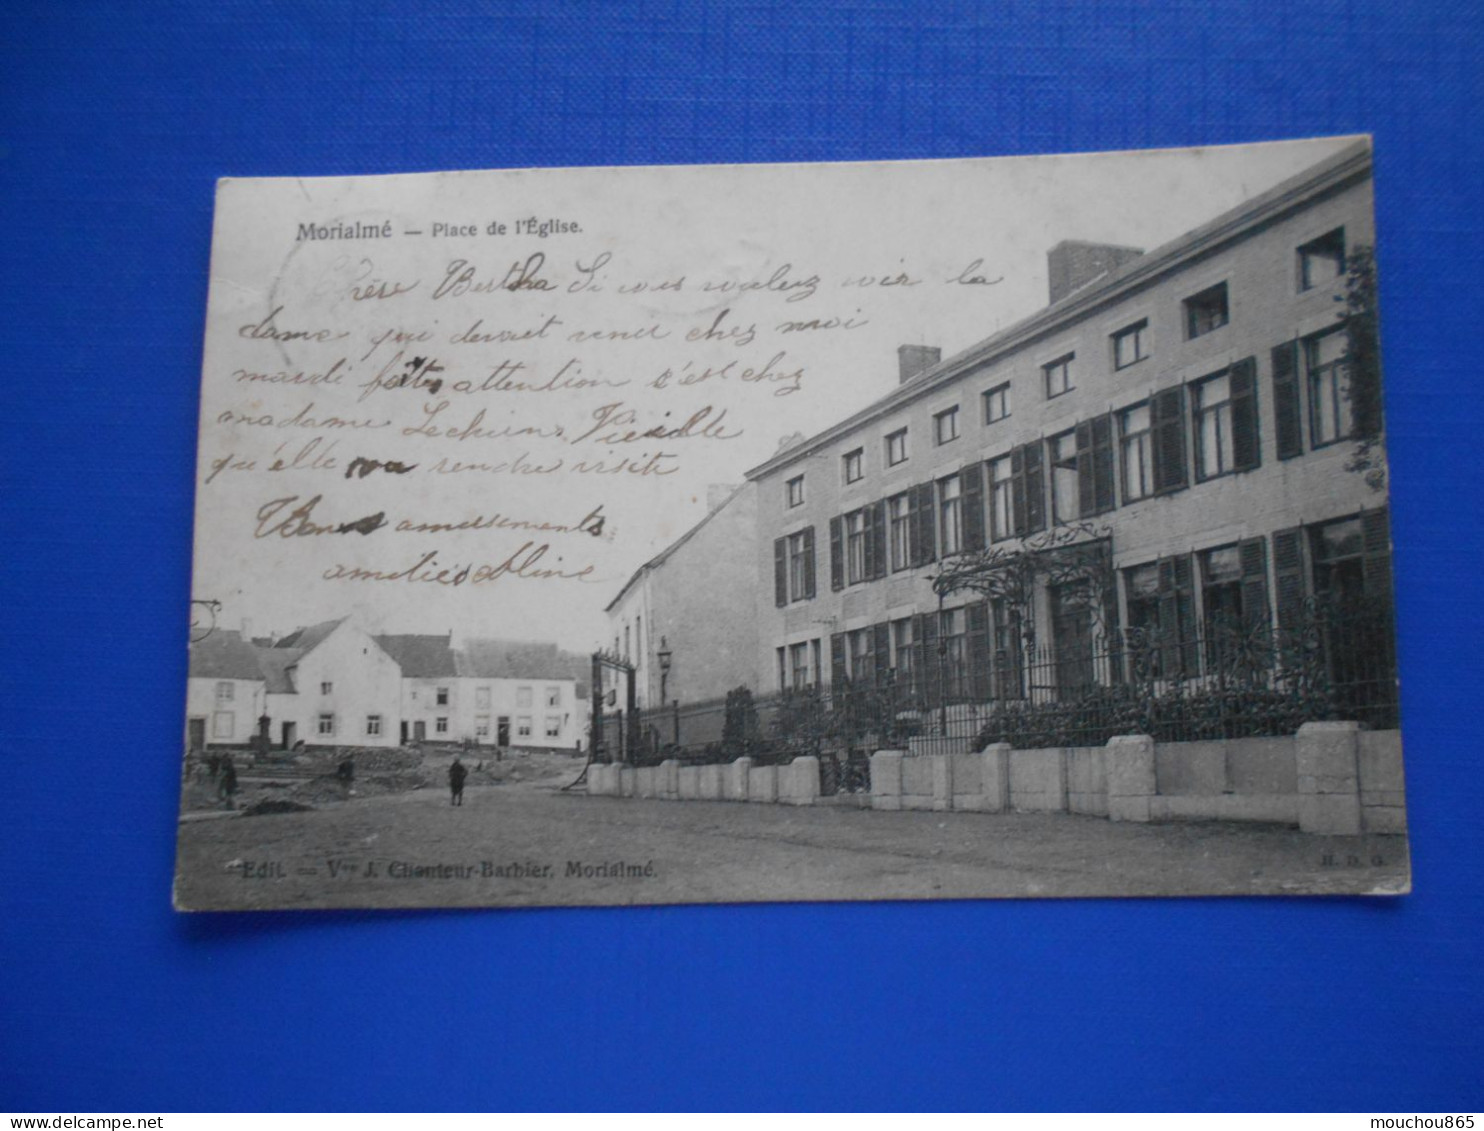 Morialmé — Place de l'Église.
Chère Bertha Si vous voulez voir la
dame qui devait venir chez moi
mardi faites attention c'est chez
madame Lechien Vieille
qu'elle va rendre visite
Bons amusements
amitiés Aline
Edit. — Vve J. Chanteur-Barbier, Morialmé.
H. D. G.
mouchou865